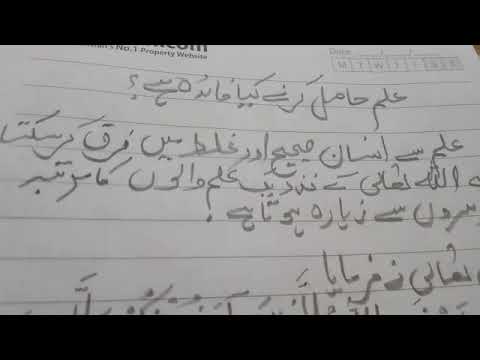 .com
's No.1 Property Website
Date
M T W T F S S
علم حاصل کرنے کیا فائدہ ہے؟
علم سے انسان صحیح اور غلط میں فرق کر سکتا
اللہ تعالی کے نزدیک علم والوں کا مرتبہ
سروں سے زیادہ ہوتا ہے۔
تعالی نے فرمایا